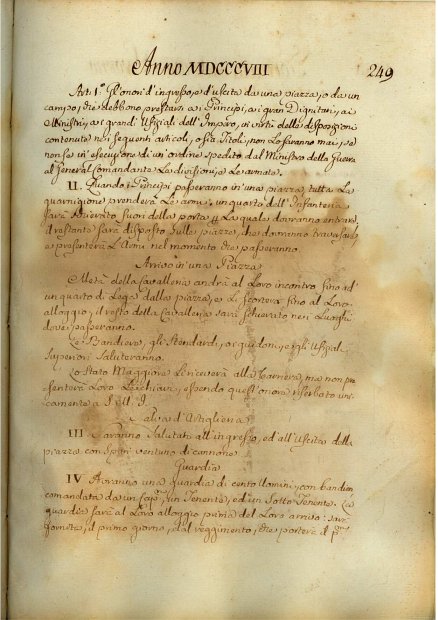 Anno MDCCCVIII
249
Art: 1.° Gl'onori d'ingresso, e d'uscita da una piazza, o da un
campo, che debbono prestarsi ai Principi, ai gran Dignitari, ai
Ministri, ai grandi Uffiziali dell'Impero, in virtù delle disposizioni
contenute nei seguenti articoli, o sia Titoli, non lo saranno mai, se
non se in esecuzione di un ordine spedito dal Ministro della Guerra
al General Comandante le divisioni, o le armate.
II. Quando i Principi passeranno in una piazza, tutta la
guarnigione prenderà le armi; un quarto dell'Infanteria
sarà schierato fuori della porta per la quale dovranno entrare,
il restante sarà disposto sulle piazze, che dovranno traversare
e presenterà l'Armi nel momento che passeranno.
Arrivo in una Piazza
Metà della Cavalleria andrà al Loro incontro fino ad
un quarto di Lega dalla piazza, e li scorterà fino al Loro
alloggio, il resto della Cavalleria sarà schierato nei Luoghi
dove passeranno.
Le Bandiere, gli Stendardi, i guidoni, e gli Uffiziali
Superiori saluteranno.
Lo Stato Maggiore li riceverà alla Barriera, ma non pre
senterà Loro le chiavi, essendo quest'onore riserbato uni
camente a S. M. I.
Salva d'Artiglieria
III Saranno Salutati all'ingresso, ed all'Uscita della
piazza con Spari ventuno di cannone
Guardia
IV Avranno una guardia di cento Uomini, con bandiera
comandata da un Cap.°, un Tenente, ed un Sotto Tenente. La
guardia sarà al Loro alloggio prima del Loro arrivo: sarà
fornita, il primo giorno, dal reggimento, che porterà il p.mo